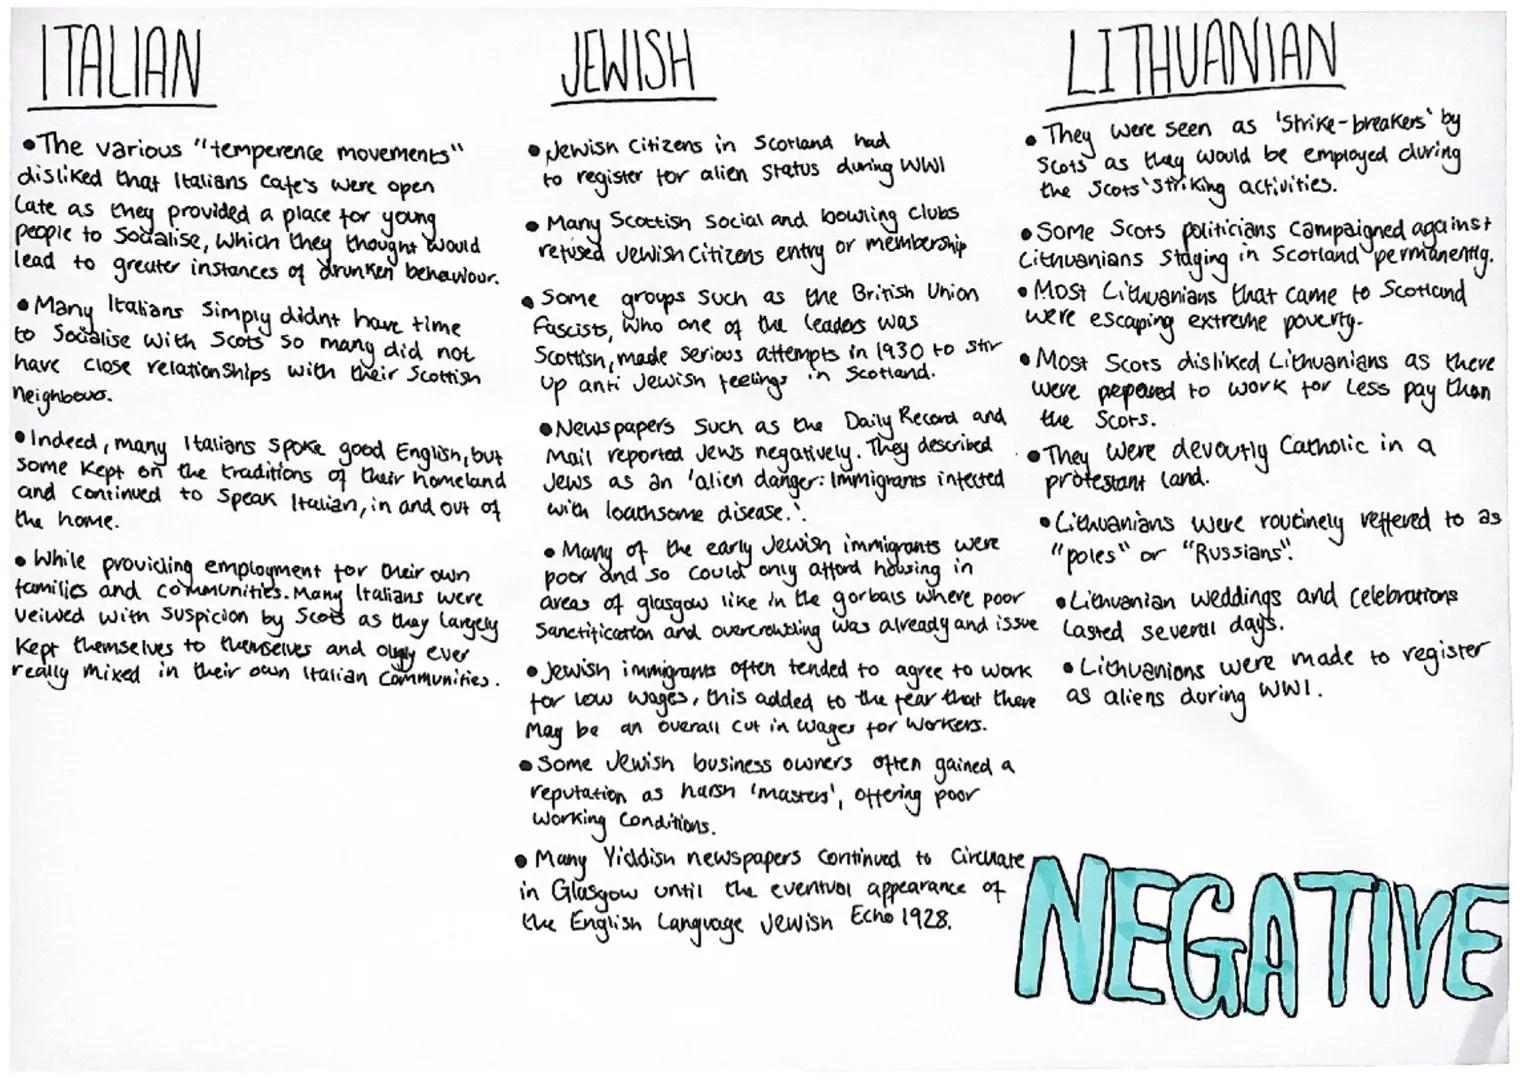 ITALIAN
•The various "temperence movements"
disliked that Italians Cafe's were open
late as they provided a place for young
people to Socialise, which they thought would
lead to greater instances of drunken behaviour.
•Many Italians Simply didnt have time
to Socialise with Scots so many did not
have close relationships with their Scottish
neighbours.
•Indeed, many Italians spoke good English, but
some kept on the traditions of their homeland
and continued to speak Italian, in and out of
the home.
•While providing employment for their own
families and communities. Many Italians were
veiwed with suspicion by Scots as they largely
kept themselves to themselves and only ever
really mixed in their own Italian Communities.
JEWISH
•Jewish Citizens in Scotland had
to register for alien status during WWI
•Many Scottish social and bowling clubs
refused Jewish Citizens entry or membership
•Some groups such as the British Union
Fascists, who one of the leaders was
Scottish, made serious attempts in 1930 to stir
up anti Jewish feelings in Scotland.
•Newspapers such as the Daily Record and
Mail reported Jews negatively. They described
Jews as an 'alien danger: Immigrants infected
with loathsome disease.'.
•Many of the early Jewish immigrants were
poor and so could only afford housing in
areas of glasgow like in the gorbals where poor
Sanctification and overcrowding was already and issue
•Jewish immigrants often tended to agree to work
for low wages, this added to the fear that there
May be an overall cut in wages for workers.
•Some Jewish business owners often gained a
reputation as harsh 'masters', offering poor
working Conditions.
•Many Yiddish newspapers continued to Circulate
in Glasgow until the eventual appearance of
the English Language Jewish Echo 1928.
LITHUANIAN
•They were seen as 'Strike-breakers' by
Scots as they would be employed during
the Scots' Striking activities.
•Some Scots politicians campaigned against
Lithuanians staying in Scotland permanently.
•Most Lithuanians that came to Scotland
were escaping extreme poverty.
•Most Scots disliked Lithuanians as there
were pepared to work for less pay than
the Scots.
•They were devoutly Catholic in a
protestant land.
•Lithuanians were routinely reffered to as
"poles" or "Russians".
•Lithuanian weddings and celebrations
lasted several days.
•Lithuanions were made to register
as aliens during WWI.
NEGATIVE